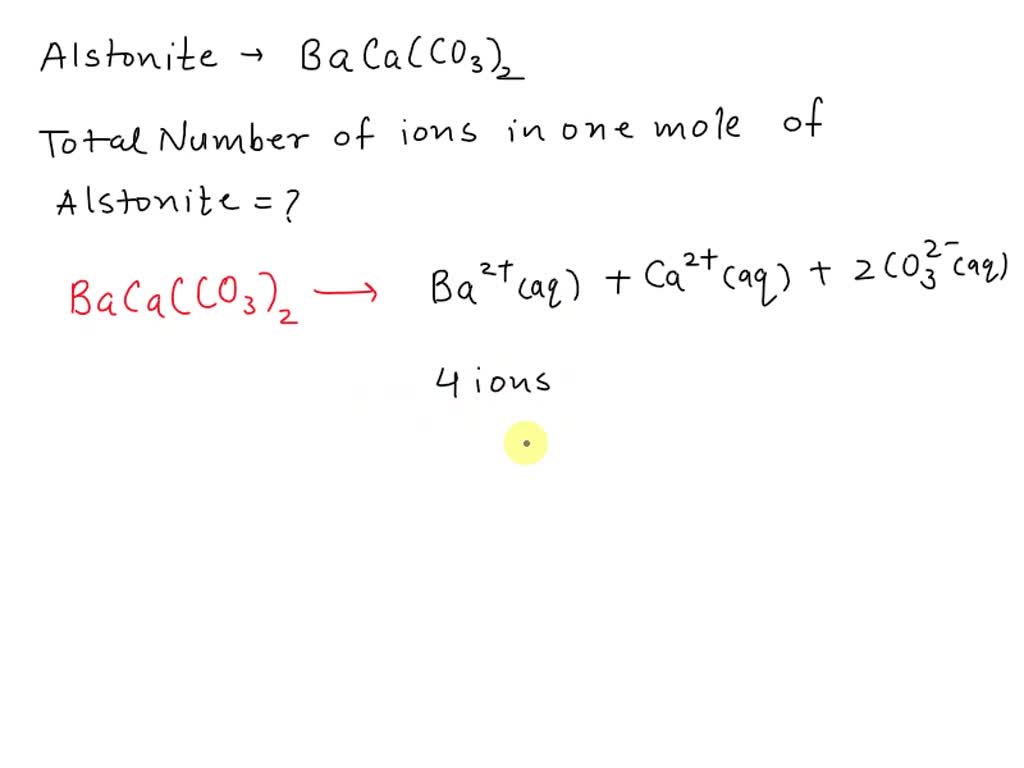 Alstonite → BaCa(CO₃)₂
Total Number of ions in one mole of
Alstonite = ?
BaCa(CO₃)₂ ⟶ Ba²⁺(aq) + Ca²⁺(aq) + 2CO₃²⁻(aq)
4 ions